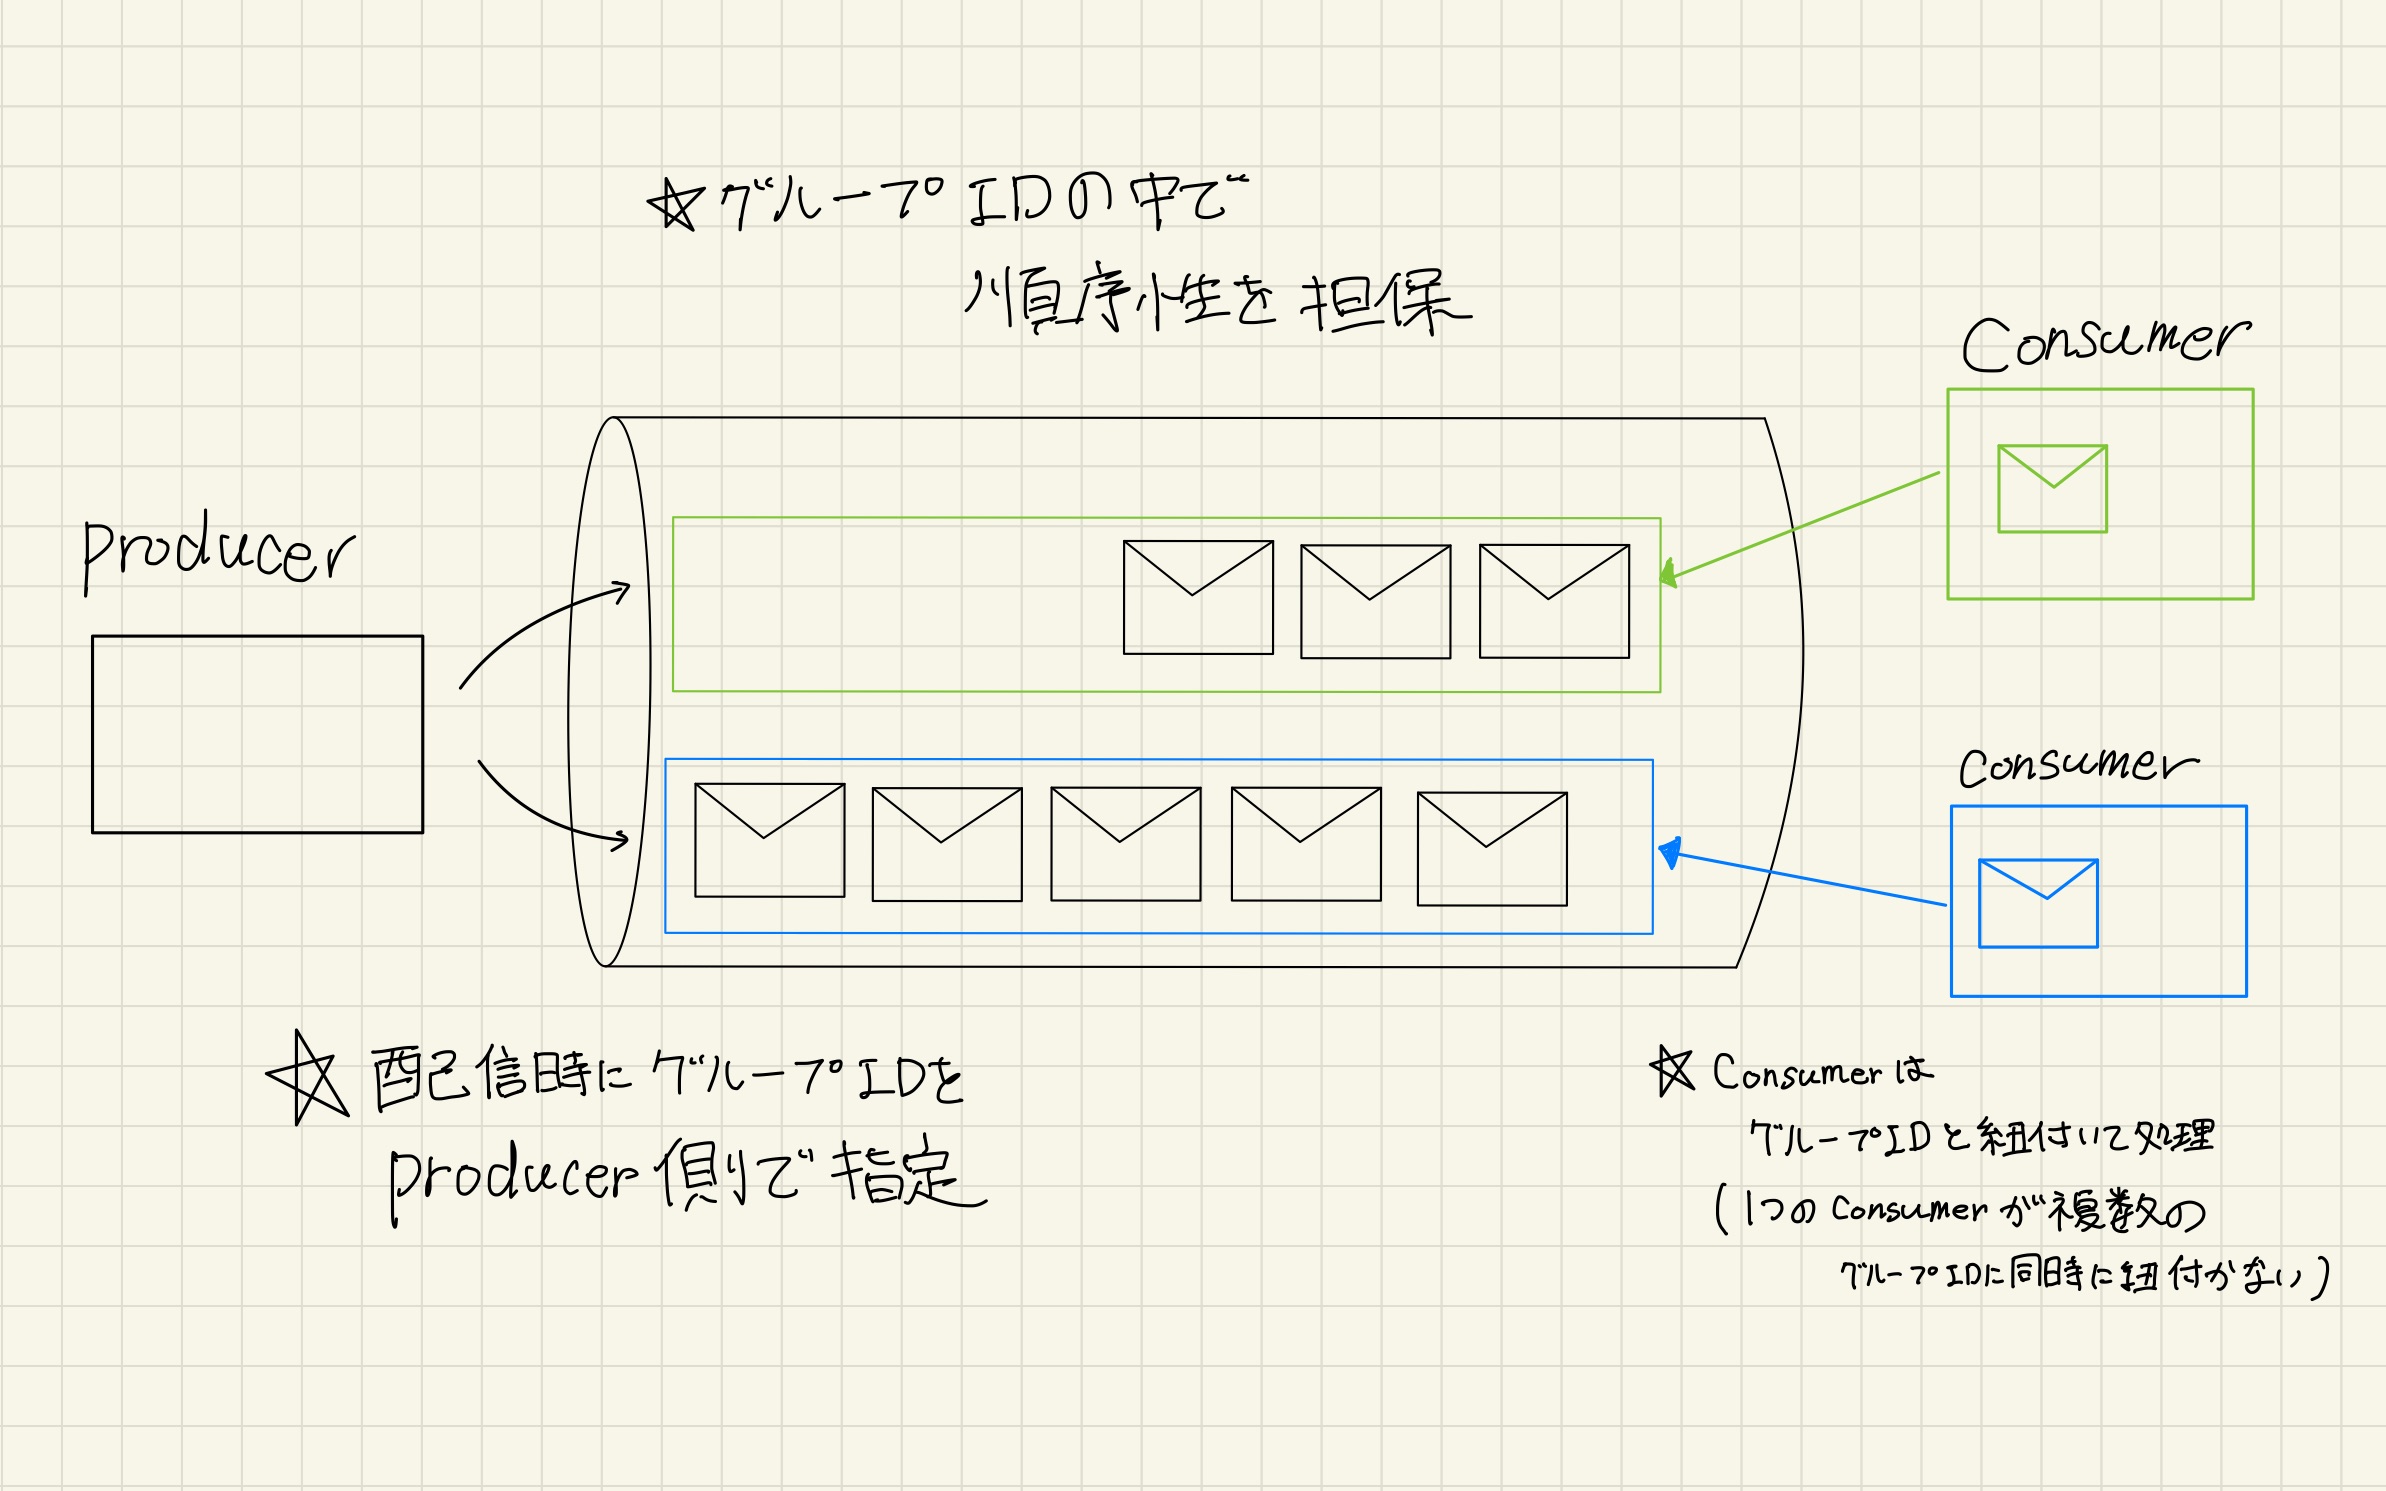 ☆グループIDの中で
順序性を担保
Consumer
producer
Consumer
☆ 配信時にグループIDを
producer側で指定
☆ Consumerは
グループIDと紐付いて処理
(1つのConsumerが複数の
グループIDに同時に紐付かない)